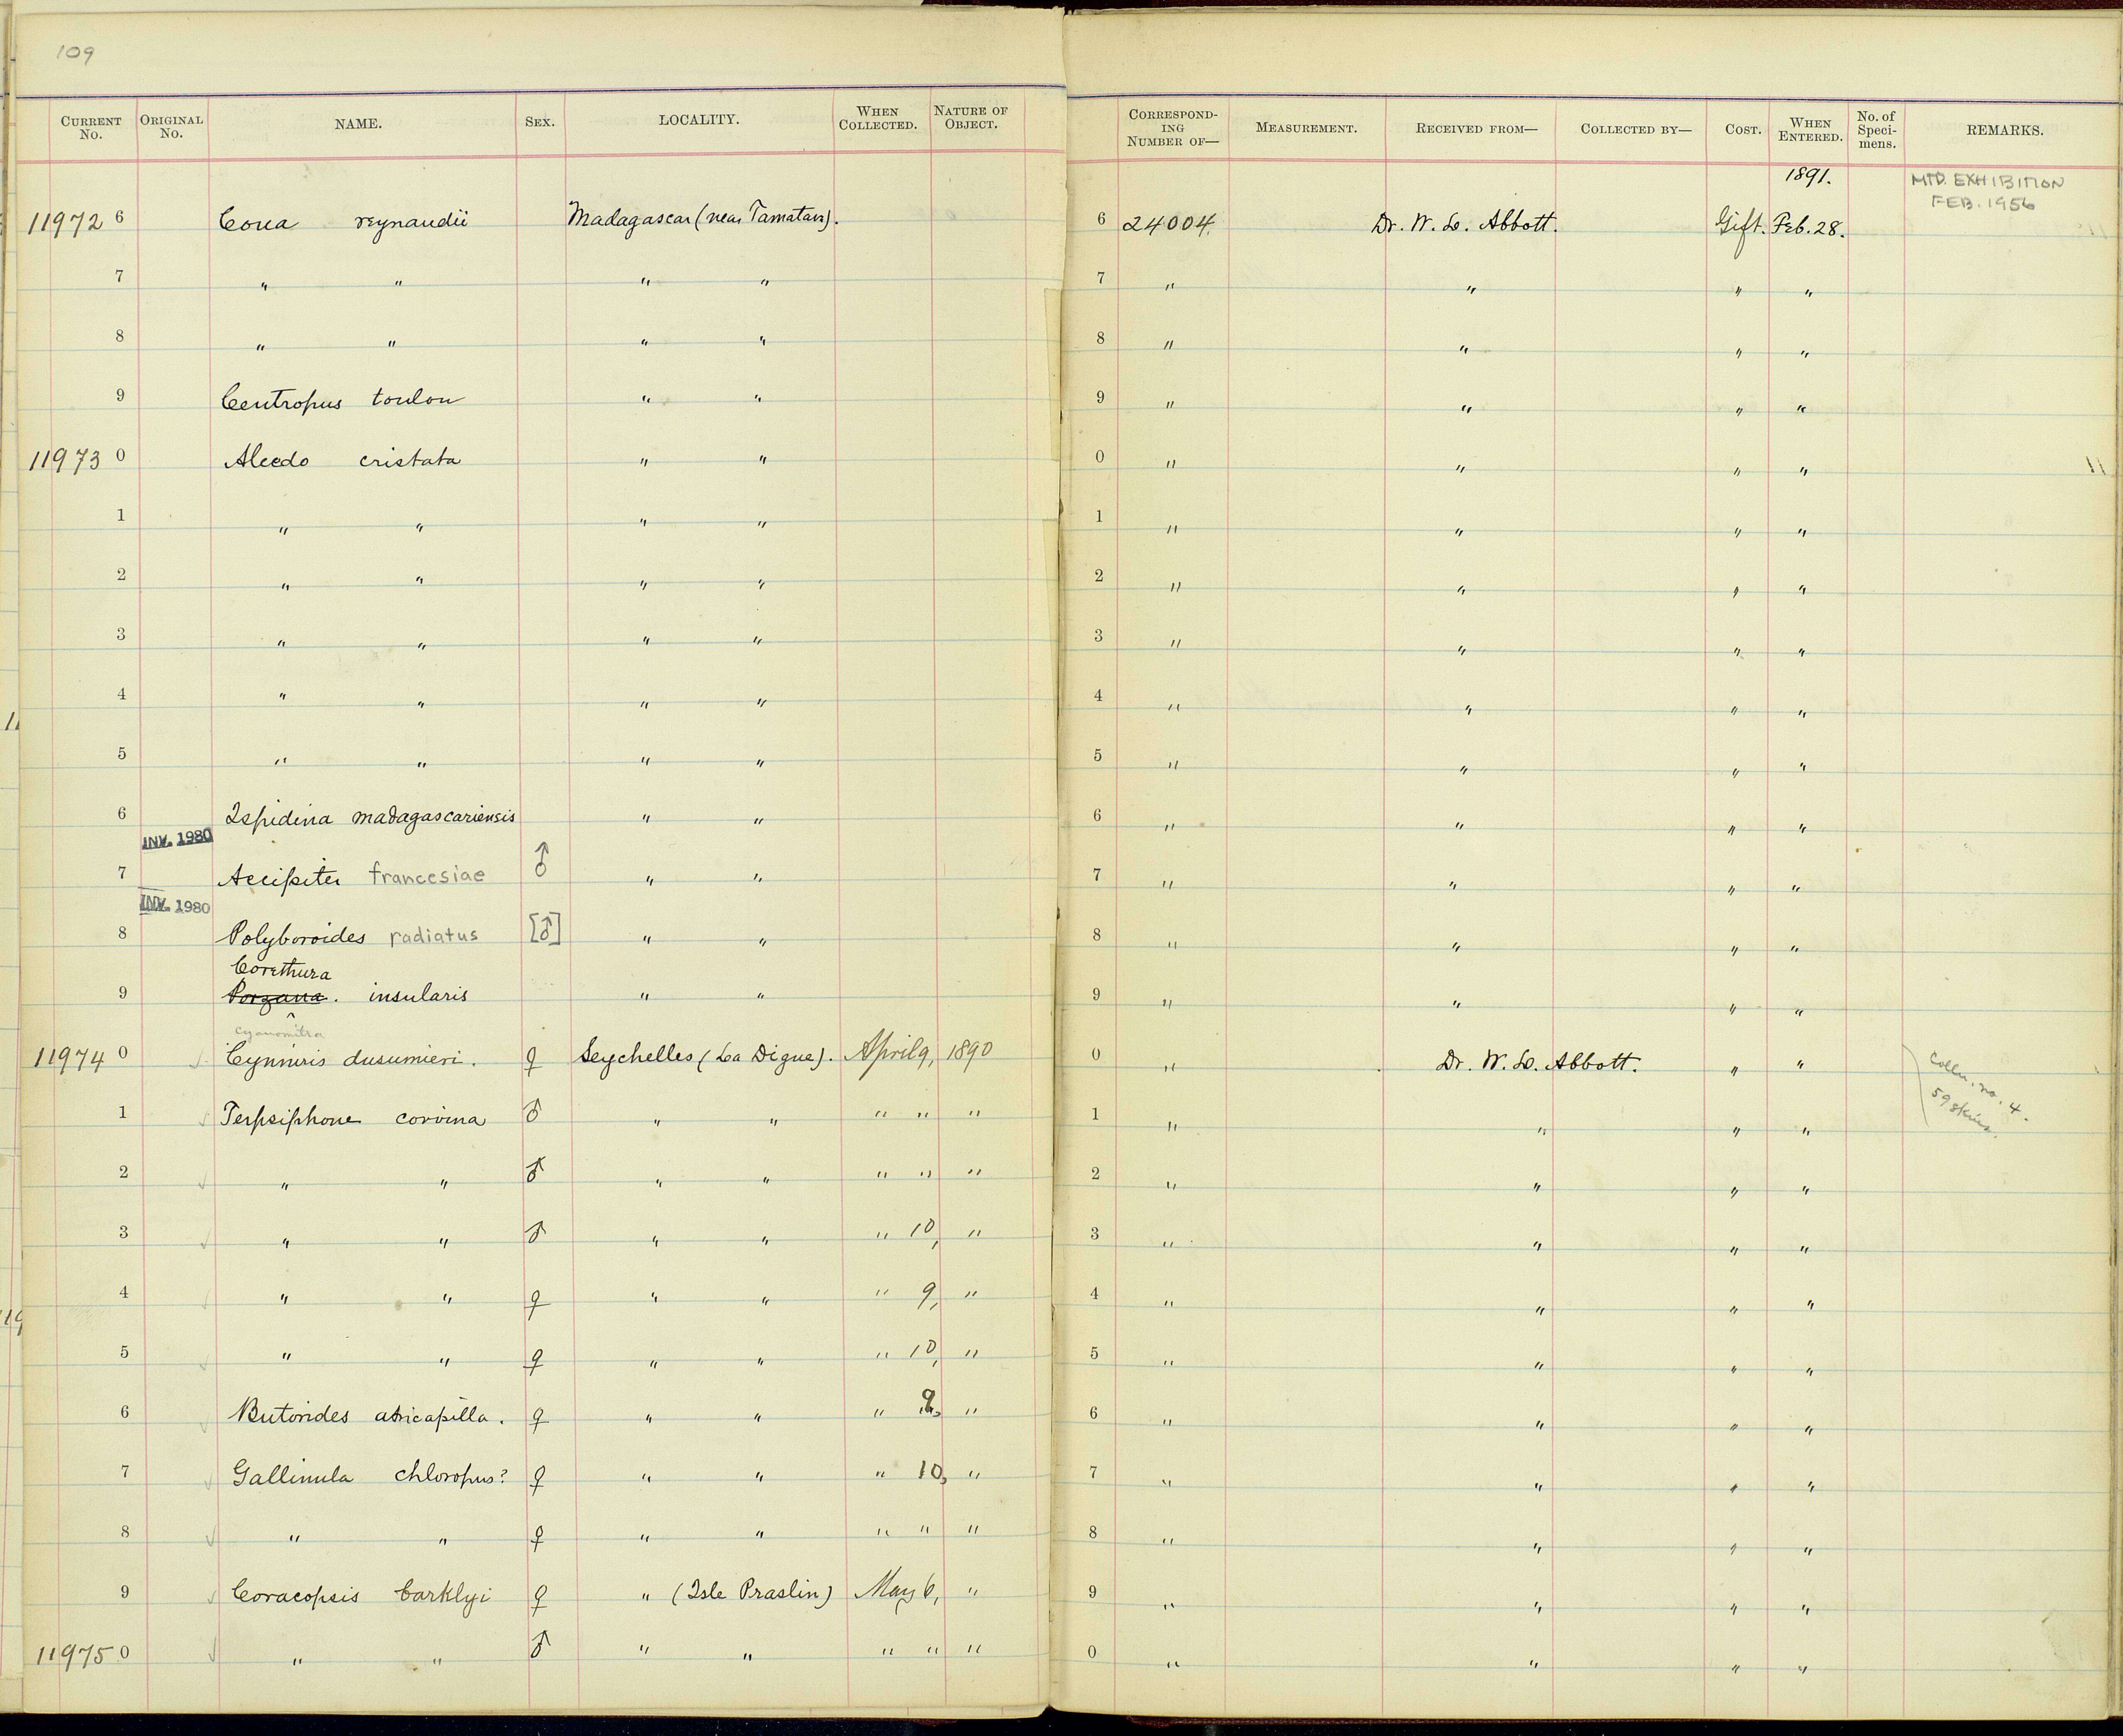 109
CURRENT No. ORIGINAL No. NAME. SEX. LOCALITY. WHEN COLLECTED. NATURE OF OBJECT. CORRESPONDING NUMBER OF— MEASUREMENT. RECEIVED FROM— COLLECTED BY— COST. WHEN ENTERED. No. of Specimens. REMARKS.
1891. MTD. EXHIBITION
FEB. 1956
11972 6 Coua reynaudii Madagascar (near Tamatave). 6 24004. Dr. W. L. Abbott. Gift. Feb. 28.
7 " " " " 7 " " " "
8 " " " " 8 " " " "
9 Centropus toulou " " 9 " " " "
11973 0 Alcedo cristata " " 0 " " " "
1 " " " " 1 " " " "
2 " " " " 2 " " " "
3 " " " " 3 " " " "
4 " " " " 4 " " " "
5 " " " " 5 " " " "
6 Ispidina madagascariensis " " 6 " " " "
INV. 1980
7 Accipiter francesiae ♂ " " 7 " " " "
INV. 1980
8 Polyboroides radiatus [♂] " " 8 " " " "
Corethura
9 Porzana. insularis " " 9 " " " "
Cyanomitra
11974 0 Cynniris dusumieri. ♀ Seychelles (La Digue). April 9, 1890 0 " Dr. W. L. Abbott. " " Colln. no. 4.
59 skins.
1 Terpsiphone corvina ♂ " " " " " 1 " " " "
2 " " ♂ " " " " " 2 " " " "
3 " " ♂ " " " 10, " 3 " " " "
4 " " ♀ " " " 9, " 4 " " " "
5 " " ♀ " " " 10, " 5 " " " "
6 Butorides atricapilla. ♀ " " " 9, " 6 " " " "
7 Gallinula chloropus? ♀ " " " 10, " 7 " " " "
8 " " ♀ " " " " " 8 " " " "
9 Coracopsis barklyi ♀ " (Isle Praslin) May 6, " 9 " " " "
11975 0 " " ♂ " " " " " 0 " " " "